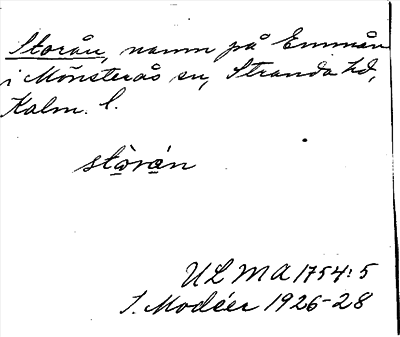 Storån, namn på Emmån
i Mönsterås sn, Stranda hd,
Kalm. l.
stòrán
ULMA 1754:5
I. Modéer 1926-28